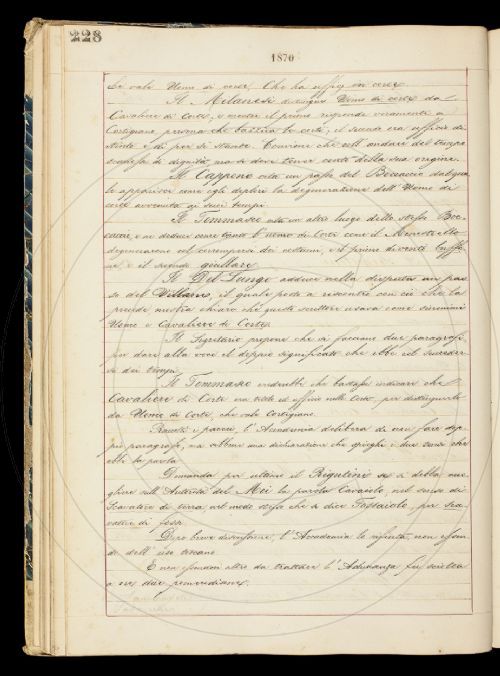 228
1870
Ce vale Uomo di corte, Che ha uffizj in corte.
Il Milanesi distingue Uomo di corte da
Cavaliere di Corte; e mentre il primo risponde veramente a
Cortigiano, persona che bazzica le corti; il secondo era ufficio di-
stinto e di per se stante. Conviene che nell'andare del tempo
scapasse di dignità, ma si deve tener conto della sua origine.
Il Capponi cita un passo del Boccaccio dal quale
le apparisce come egli deplori la degenerazione dell'Uomo di
corte avvenuta ai suoi tempi.
Il Tommaseo cita un altro luogo dello stesso Boc-
caccio, e ne deduce come tanto l'uomo di Corte come il Menestrello
degenerarono nel corrompersi dei costumi, e il primo diventò buffo-
ne, e il secondo giullare.
Il Del-Lungo adduce nella disputa un pas-
so del Villani, il quale posto a riscontro con ciò che la
precede mostra chiaro che questo scrittore usava come sinonimi
Uomo e Cavaliere di Corte.
Il Segretario propone che si facciano due paragrafi,
per dare alla voce il doppio significato che ebbe nel succeder-
si dei tempi.
Il Tommaseo crederebbe che bastasse indicare che
Cavaliere di Corte era titolo ed ufficio nelle Corti, per distinguerlo
da Uomo di Corte, che vale Cortigiano.
Raccolti i pareri, l'Accademia delibera di non fare dop-
pio paragrafo, ma sibbene una dichiarazione che spieghi i due sensi che
ebbe la parola.
Domanda per ultimo il Rigutini se si debba acco-
gliere sull'Autorità del Mei la parola Cavaiolo, nel senso di
Scavatore di terra, nel modo stesso che si dice Fossaiolo, per sca-
vatore di fosse.
Dopo breve discussione, l'Accademia la rifiuta, non essen-
do dell'uso toscano.
E non essendoci altro da trattare l'Adunanza fu sciolta
a ore due pomeridiane.